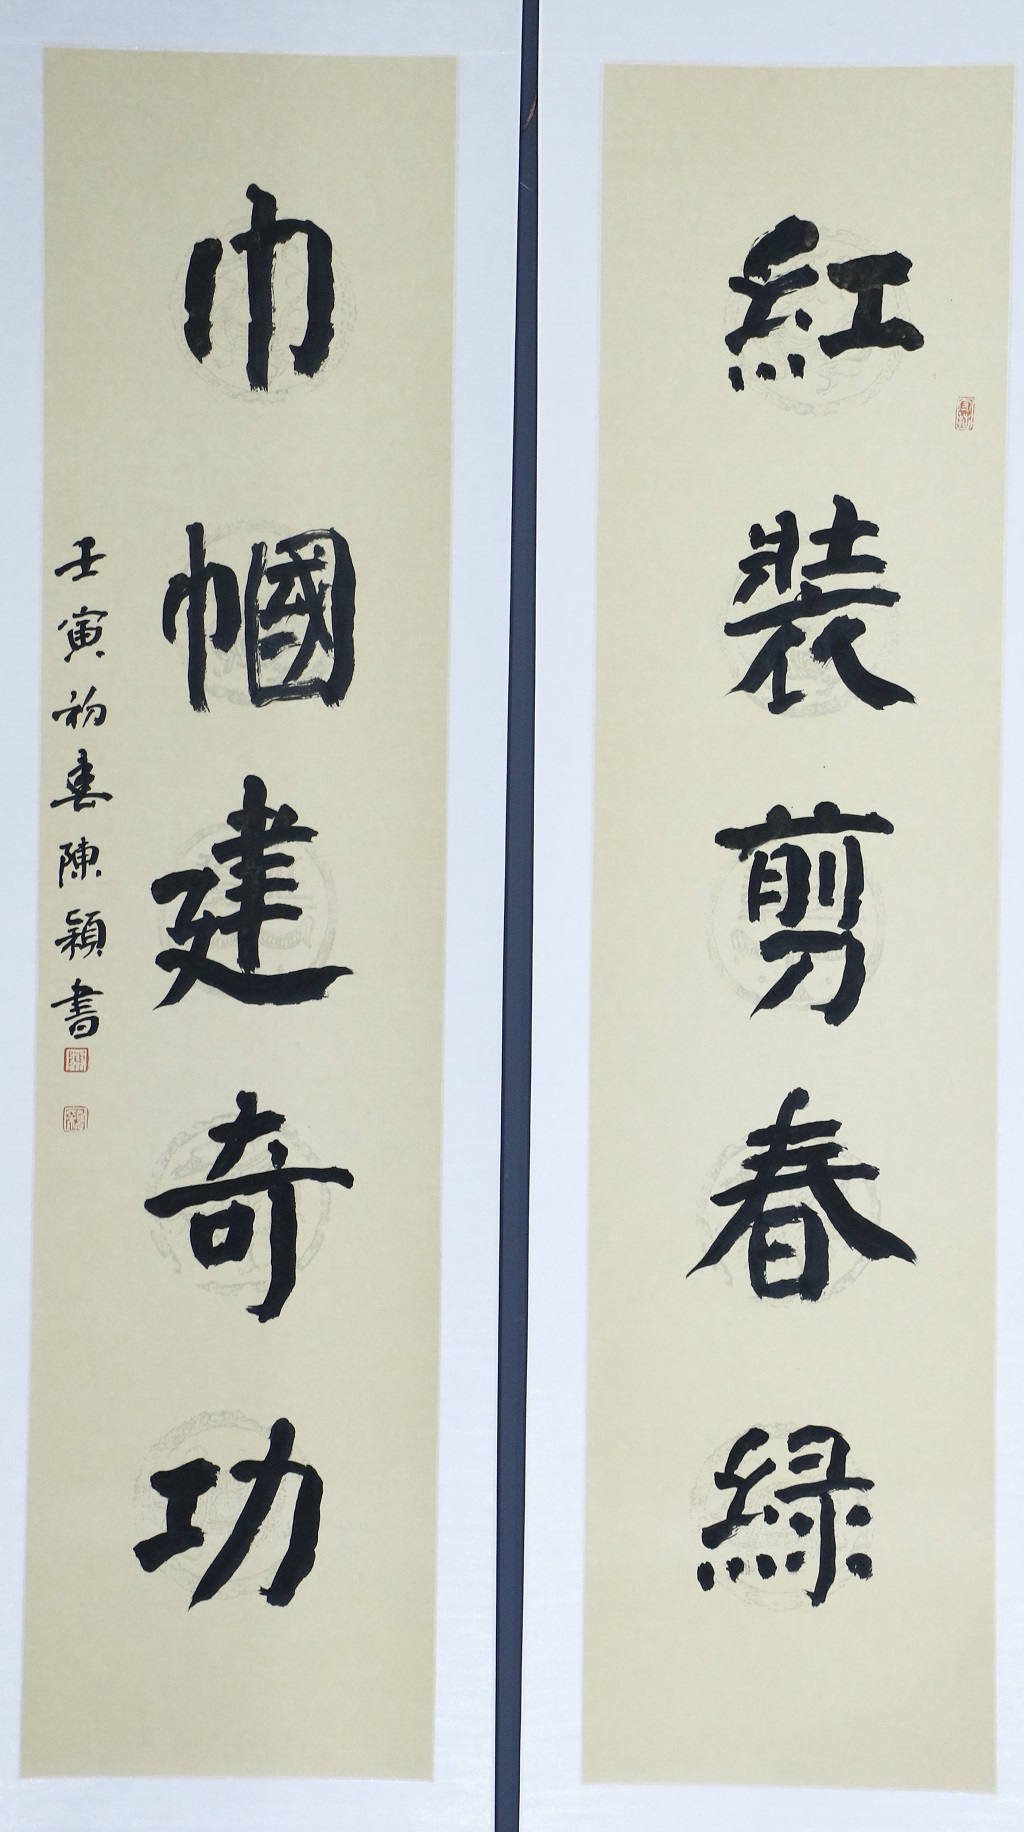 紅裝剪春綠
巾幗建奇功
壬寅初春陳穎書